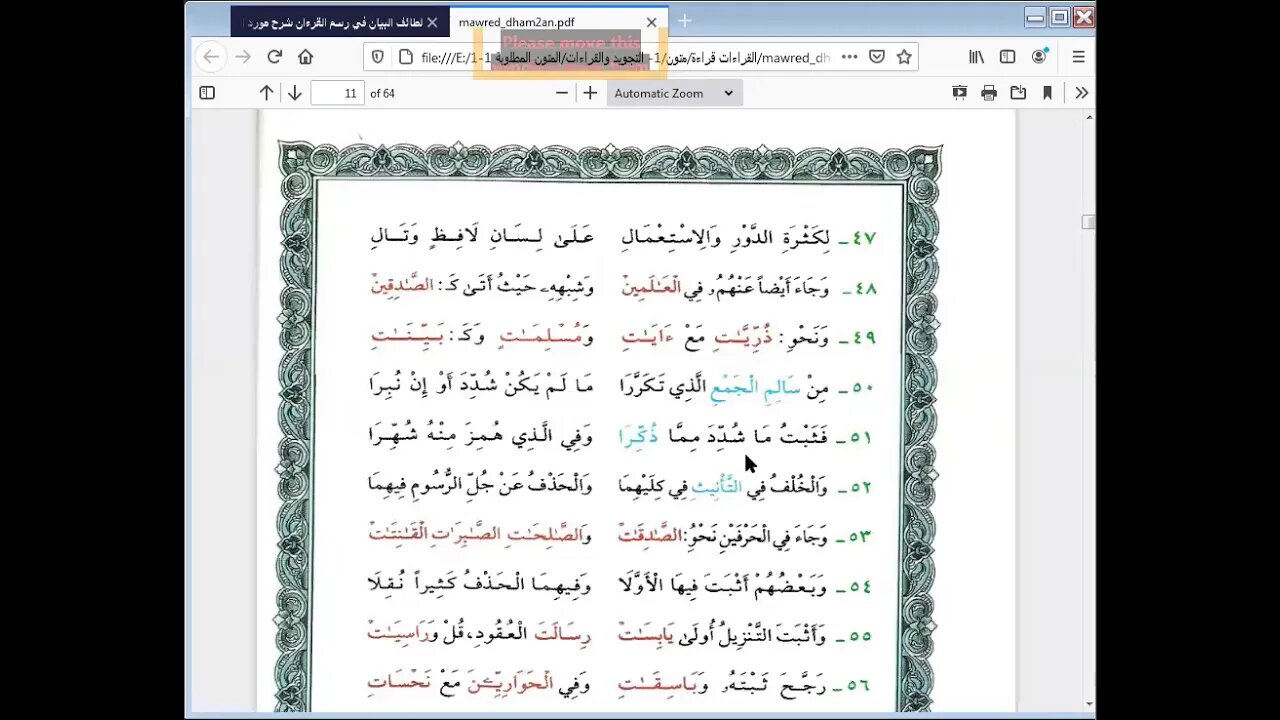 لطائف البيان في رسم القرءان شرح مورد
mawred_dham2an.pdf
Please move this
file:///E:/1-1 القراءات قراءة/متون/1- التجويد والقراءات/المتون المطلوبة/mawred_dh
11 of 64
Automatic Zoom
٤٧ - لِكَثْرَةِ الدَّوْرِ وَالِاسْتِعْمَالِ عَلَىٰ لِسَانِ لَافِظٍ وَتَالِ
٤٨ - وَجَاءَ أَيْضاً عَنْهُمُۥ فِي الْعَـٰلَمِينْ وَشِبْهِهِۦ حَيْثُ أَتَىٰ كَـ: الصَّـٰدِقِينْ
٤٩ - وَنَحْوِ: ذُرِّيَّـٰتٍ مَعْ ءَايَـٰتِ وَمُسْلِمَـٰتٍ وَكَـ: بَيِّنَـٰتِ
٥٠ - مِنْ سَالِمِ الْجَمْعِ الَّذِي تَكَرَّرَا مَا لَمْ يَكُنْ شُدِّدَ أَوْ إِنْ نُبِرَا
٥١ - فَثَبْتُ مَا شُدِّدَ مِمَّا ذُكِّرَا وَفِي الَّذِي هُمِزَ مِنْهُ شُهِّرَا
٥٢ - وَالْخُلْفُ فِي التَّأْنِيثِ فِي كِلَيْهِمَا وَالْحَذْفُ عَنْ جُلِّ الرُّسُومِ فِيهِمَا
٥٣ - وَجَاءَ فِي الْحَرْفَيْنِ نَحْوُ: الصَّـٰدِقَـٰتْ وَالصَّـٰلِحَـٰتِ الصَّـٰبِرَٰتِ الْقَـٰنِتَـٰتْ
٥٤ - وَبَعْضُهُمْ أَثْبَتَ فِيهَا الْأَوَّلَا وَفِيهِمَا الْحَذْفُ كَثِيراً نُقِلَا
٥٥ - وَأَثْبَتَ التَّنْزِيلُ أُولَىٰ يَابِسَـٰتْ رِسَالَتَ الْعُقُودِ، قُلْ وَرَاسِيَـٰتْ
٥٦ - رَجَّحَ ثَبْتَهُۥ وَبَاسِقَـٰتِ وَفِي الْحَوَارِيِّـۧنَ مَعْ نَحْسَاتِ